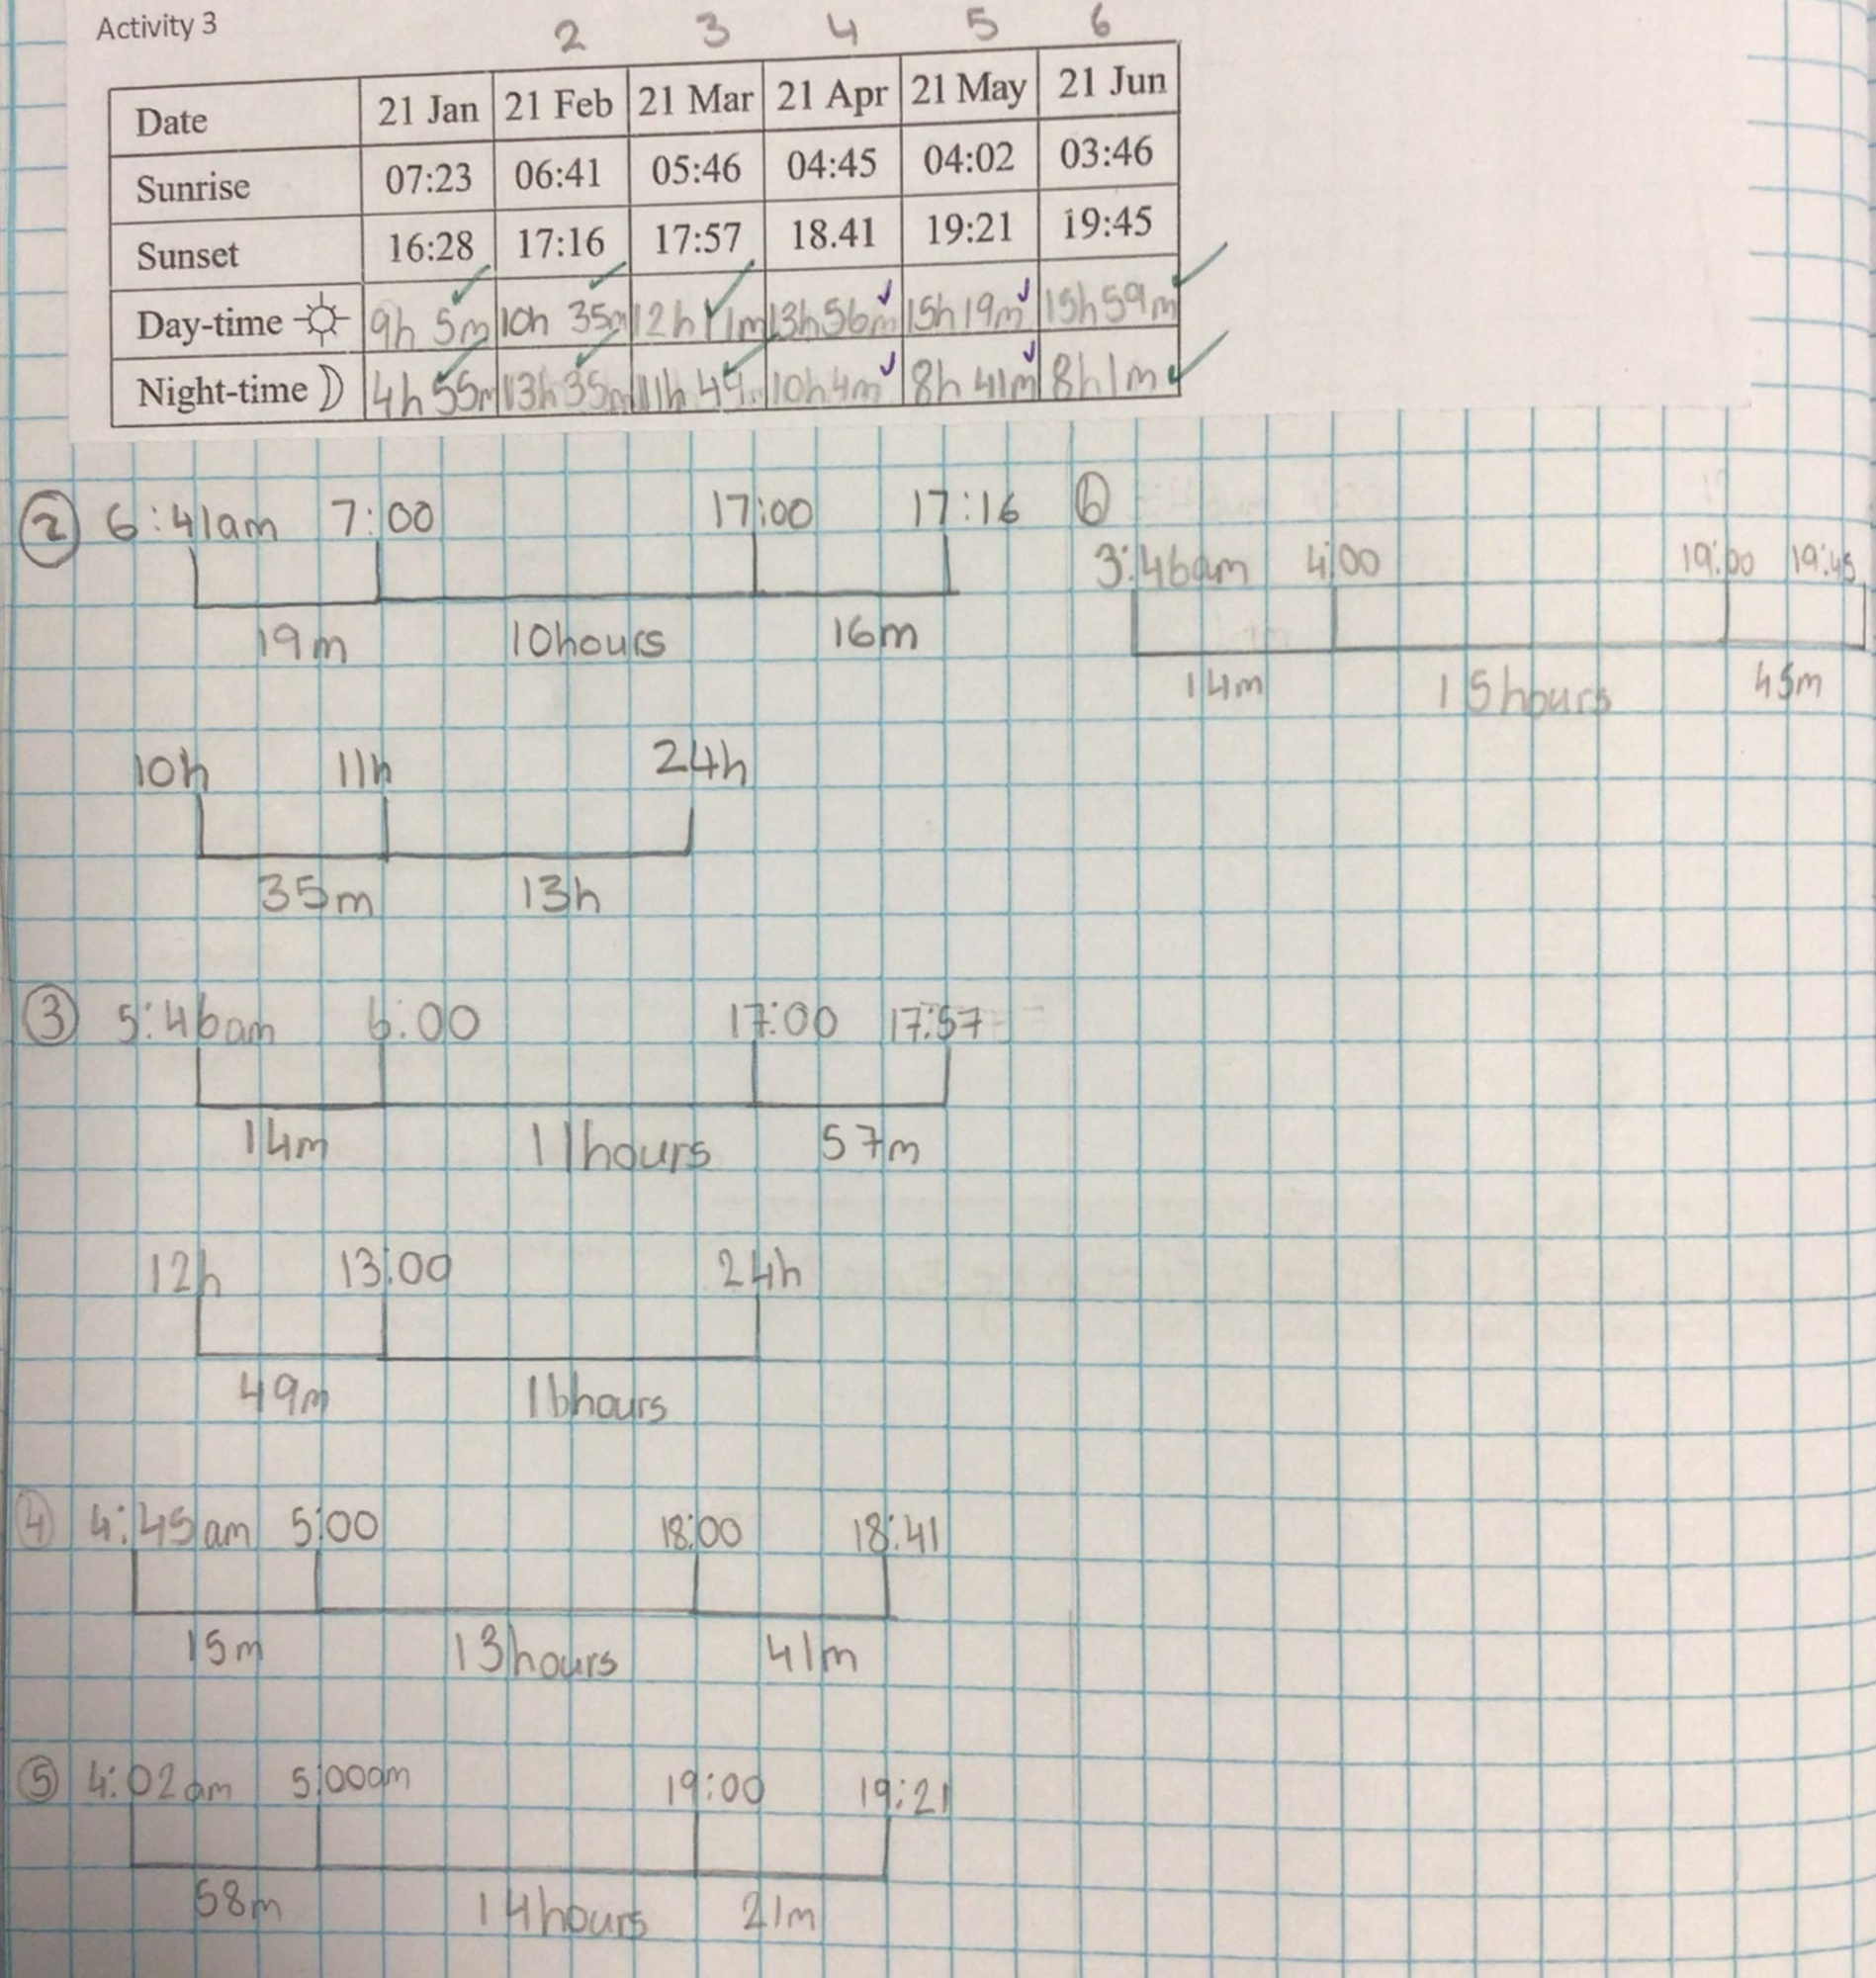 Activity 3
2 3 4 5 6
Date 21 Jan 21 Feb 21 Mar 21 Apr 21 May 21 Jun
Sunrise 07:23 06:41 05:46 04:45 04:02 03:46
Sunset 16:28 17:16 17:57 18.41 19:21 19:45
Day-time 9h 5m 10h 35m 12h 11m 13h56m 15h 19m 15h 59m
Night-time 4h 55m 13h 35m 11h 49 10h4m 8h 41m 8h1m
2 6:41am 7:00 17:00 17:16
19m 10hours 16m
6
3:46am 4:00 19:00 19:45
14m 15hours 45m
10h 11h 24h
35m 13h
3 5:46am 6:00 17:00 17:57
14m 11hours 57m
12h 13:00 24h
49m 16hours
4 4:45am 5:00 18:00 18:41
15m 13hours 41m
5 4:02am 5:00am 19:00 19:21
58m 14hours 21m